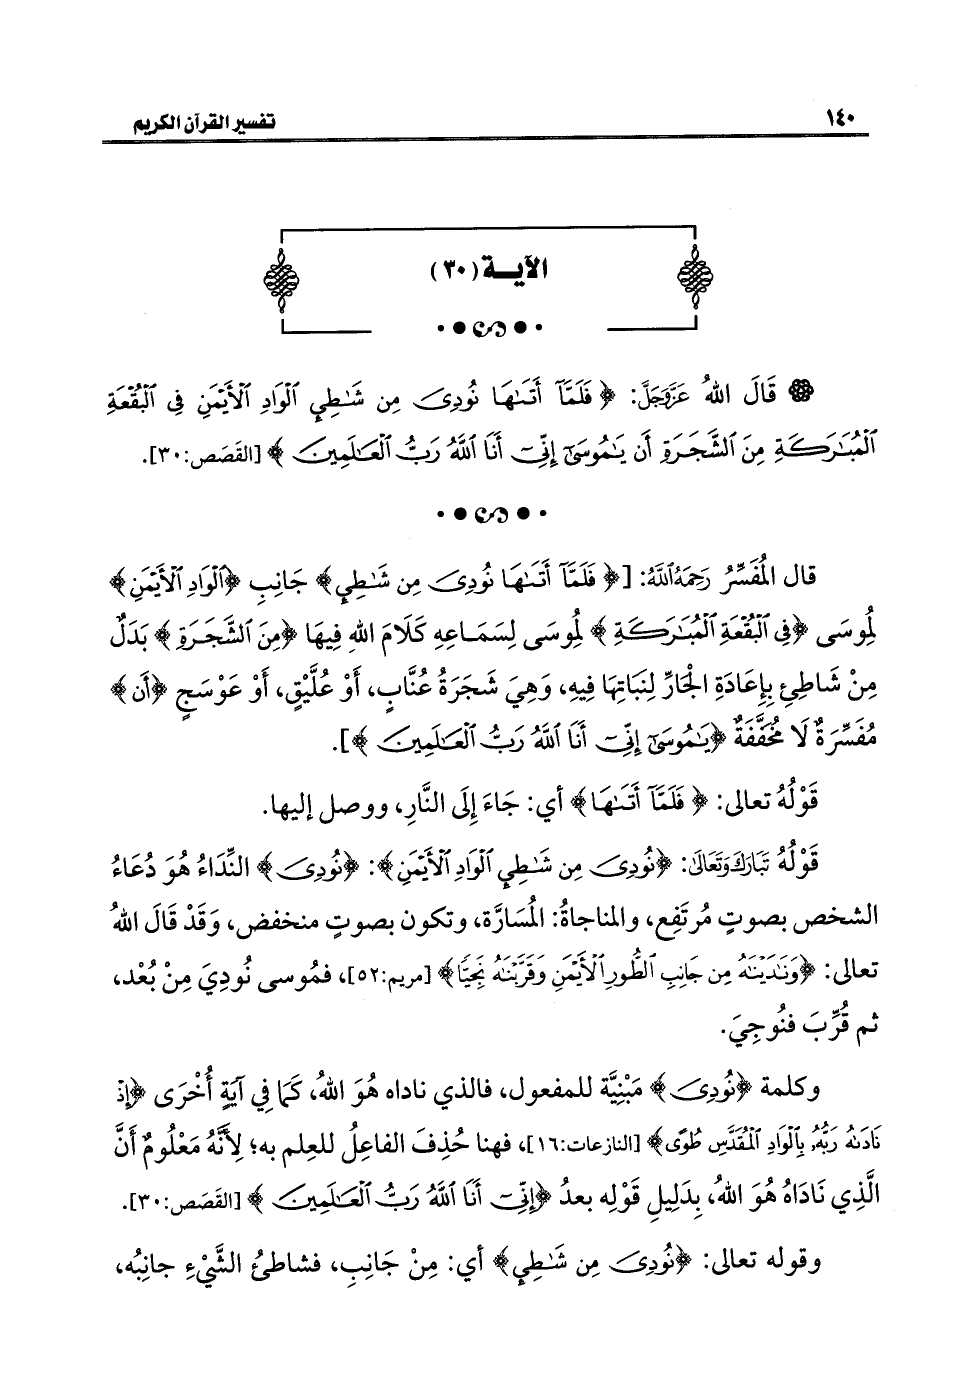 ١٤٠ تفسير القرآن الكريم
الآيـة (٣٠)
قَالَ اللهُ عَزَّوَجَلَّ: ﴿فَلَمَّآ أَتَىٰهَا نُودِىَ مِن شَٰطِئِ ٱلْوَادِ ٱلْأَيْمَنِ فِى ٱلْبُقْعَةِ
ٱلْمُبَٰرَكَةِ مِنَ ٱلشَّجَرَةِ أَن يَٰمُوسَىٰٓ إِنِّىٓ أَنَا ٱللَّهُ رَبُّ ٱلْعَٰلَمِينَ﴾ [القَصَص:٣٠].
قال المُفَسِّرُ رَحِمَهُ اللَّهُ: [﴿فَلَمَّآ أَتَىٰهَا نُودِىَ مِن شَٰطِئِ﴾ جَانِبِ ﴿ٱلْوَادِ ٱلْأَيْمَنِ﴾
لِمُوسَى ﴿فِى ٱلْبُقْعَةِ ٱلْمُبَٰرَكَةِ﴾ لِمُوسَى لِسَمَـاعِهِ كَلَامَ اللهِ فِيهَا ﴿مِنَ ٱلشَّجَرَةِ﴾ بَدَلٌ
مِنْ شَاطِئِ بِإِعَادَةِ الجَارِّ لِنَبَاتِهَا فِيهِ، وَهِيَ شَجَرَةُ عُنَّابٍ، أَوْ عُلَّيْقٍ، أَوْ عَوْسَجٍ ﴿أَن﴾
مُفَسِّرَةٌ لَا مُخَفَّفَةٌ ﴿يَٰمُوسَىٰٓ إِنِّىٓ أَنَا ٱللَّهُ رَبُّ ٱلْعَٰلَمِينَ﴾].
قَوْلُهُ تعالى: ﴿فَلَمَّآ أَتَىٰهَا﴾ أي: جَاءَ إِلَى النَّارِ، ووصل إليها.
قَوْلُهُ تَبَارَكَ وَتَعَالَى: ﴿نُودِىَ مِن شَٰطِئِ ٱلْوَادِ ٱلْأَيْمَنِ﴾: ﴿نُودِىَ﴾ النِّدَاءُ هُوَ دُعَاءُ
الشخص بصوتٍ مُرتَفِعٍ، والمناجاةُ: المُسَارَّة، وتكون بصوتٍ منخفض، وَقَدْ قَالَ اللهُ
تعالى: ﴿وَنَٰدَيْنَٰهُ مِن جَانِبِ ٱلطُّورِ ٱلْأَيْمَنِ وَقَرَّبْنَٰهُ نَجِيًّا﴾ [مريم:٥٢]، فمُوسى نُودِيَ مِنْ بُعْد،
ثم قُرِّبَ فنُوجِيَ.
وكلمة ﴿نُودِىَ﴾ مَبْنِيَّة للمفعول، فالذي ناداه هُوَ اللهُ، كَمَا فِي آيَةٍ أُخْرَى ﴿إِذْ
نَادَىٰهُ رَبُّهُۥ بِٱلْوَادِ ٱلْمُقَدَّسِ طُوًى﴾ [النازعات:١٦]، فهنا حُذِفَ الفاعِلُ للعِلم به؛ لِأَنَّهُ مَعْلُومٌ أَنَّ
الَّذِي نَادَاهُ هُوَ اللهُ، بِدَلِيلِ قَوْلِه بعدُ ﴿إِنِّىٓ أَنَا ٱللَّهُ رَبُّ ٱلْعَٰلَمِينَ﴾ [القَصَص:٣٠].
وقوله تعالى: ﴿نُودِىَ مِن شَٰطِئِ﴾ أي: مِنْ جَانِبِ، فشاطئُ الشَّيْءِ جانِبُه،